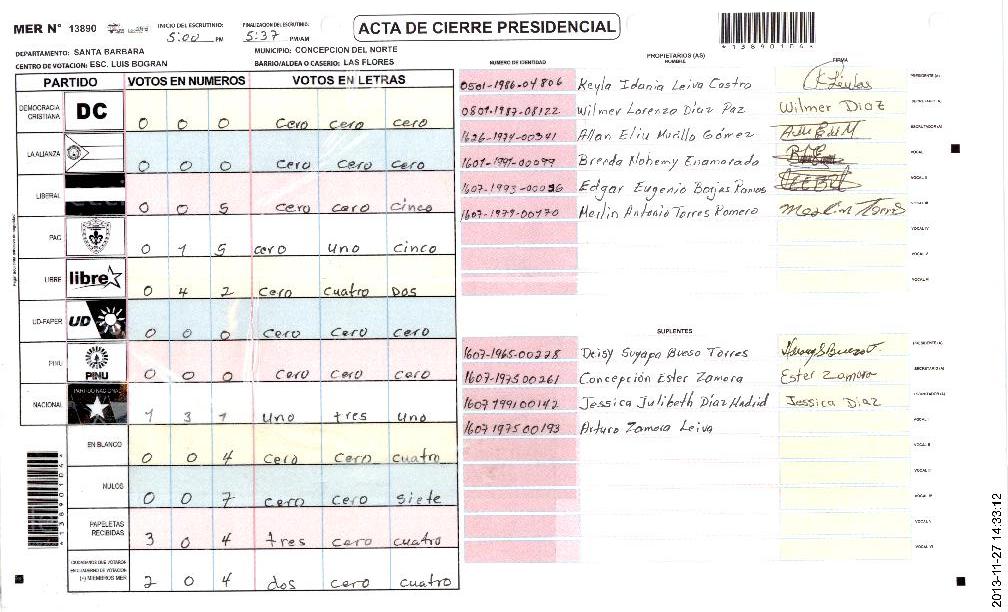 MER N° 13890 INICIO DEL ESCRUTINIO: 5:00 PM FINALIZACION DEL ESCRUTINIO: 5:37 PM/AM ACTA DE CIERRE PRESIDENCIAL *13890106*
DEPARTAMENTO: SANTA BARBARA MUNICIPIO: CONCEPCION DEL NORTE
CENTRO DE VOTACION: ESC. LUIS BOGRAN BARRIO/ALDEA O CASERIO: LAS FLORES
PARTIDO VOTOS EN NUMEROS VOTOS EN LETRAS
DEMOCRACIA CRISTIANA DC 0 0 0 cero cero cero
LA ALIANZA 0 0 0 cero cero cero
LIBERAL 0 0 5 cero cero cinco
PAC 0 1 5 cero uno cinco
LIBRE libre 0 4 2 cero cuatro Dos
UD-FAPER UD 0 0 0 cero cero cero
PINU PINU 0 0 0 cero cero cero
NACIONAL PARTIDO NACIONAL 1 3 1 uno tres uno
EN BLANCO 0 0 4 cero cero cuatro
NULOS 0 0 7 cero cero siete
PAPELETAS RECIBIDAS 3 0 4 tres cero cuatro
CIUDADANOS QUE VOTARON EN CUADERNO DE VOTACION (+) MIEMBROS MER 2 0 4 dos cero cuatro
NUMERO DE IDENTIDAD PROPIETARIOS (AS) NOMBRE FIRMA
0501-1986-04806 Keyla Idania Leiva Castro PRESIDENTE (A)
0801-1987-08122 Wilmer Lorenzo Díaz Paz Wilmer Diaz SECRETARIO (A)
1626-1974-00341 Allan Eliu Murillo Gómez ESCRUTADOR (A)
1601-1991-00099 Brenda Nohemy Enamorado VOCAL I
1607-1993-00036 Edgar Eugenio Borjas Ramos VOCAL II
1607-1979-00170 Merlin Antonio Torres Romero Merlin Torres VOCAL III
VOCAL IV
VOCAL V
VOCAL VI
SUPLENTES
1607-1965-00228 Deisy Suyapa Bueso Torres PRESIDENTE (A)
1607-1975 00261 Concepción Ester Zamora Ester Zamora SECRETARIO (A)
1607 1991 00142 Jessica Julibeth Díaz Madrid Jessica Diaz ESCRUTADOR (A)
1607 1975 00193 Arturo Zamora Leiva VOCAL I
VOCAL II
VOCAL III
VOCAL IV
VOCAL V
VOCAL VI
*13890104*
2013-11-27 14:33:12